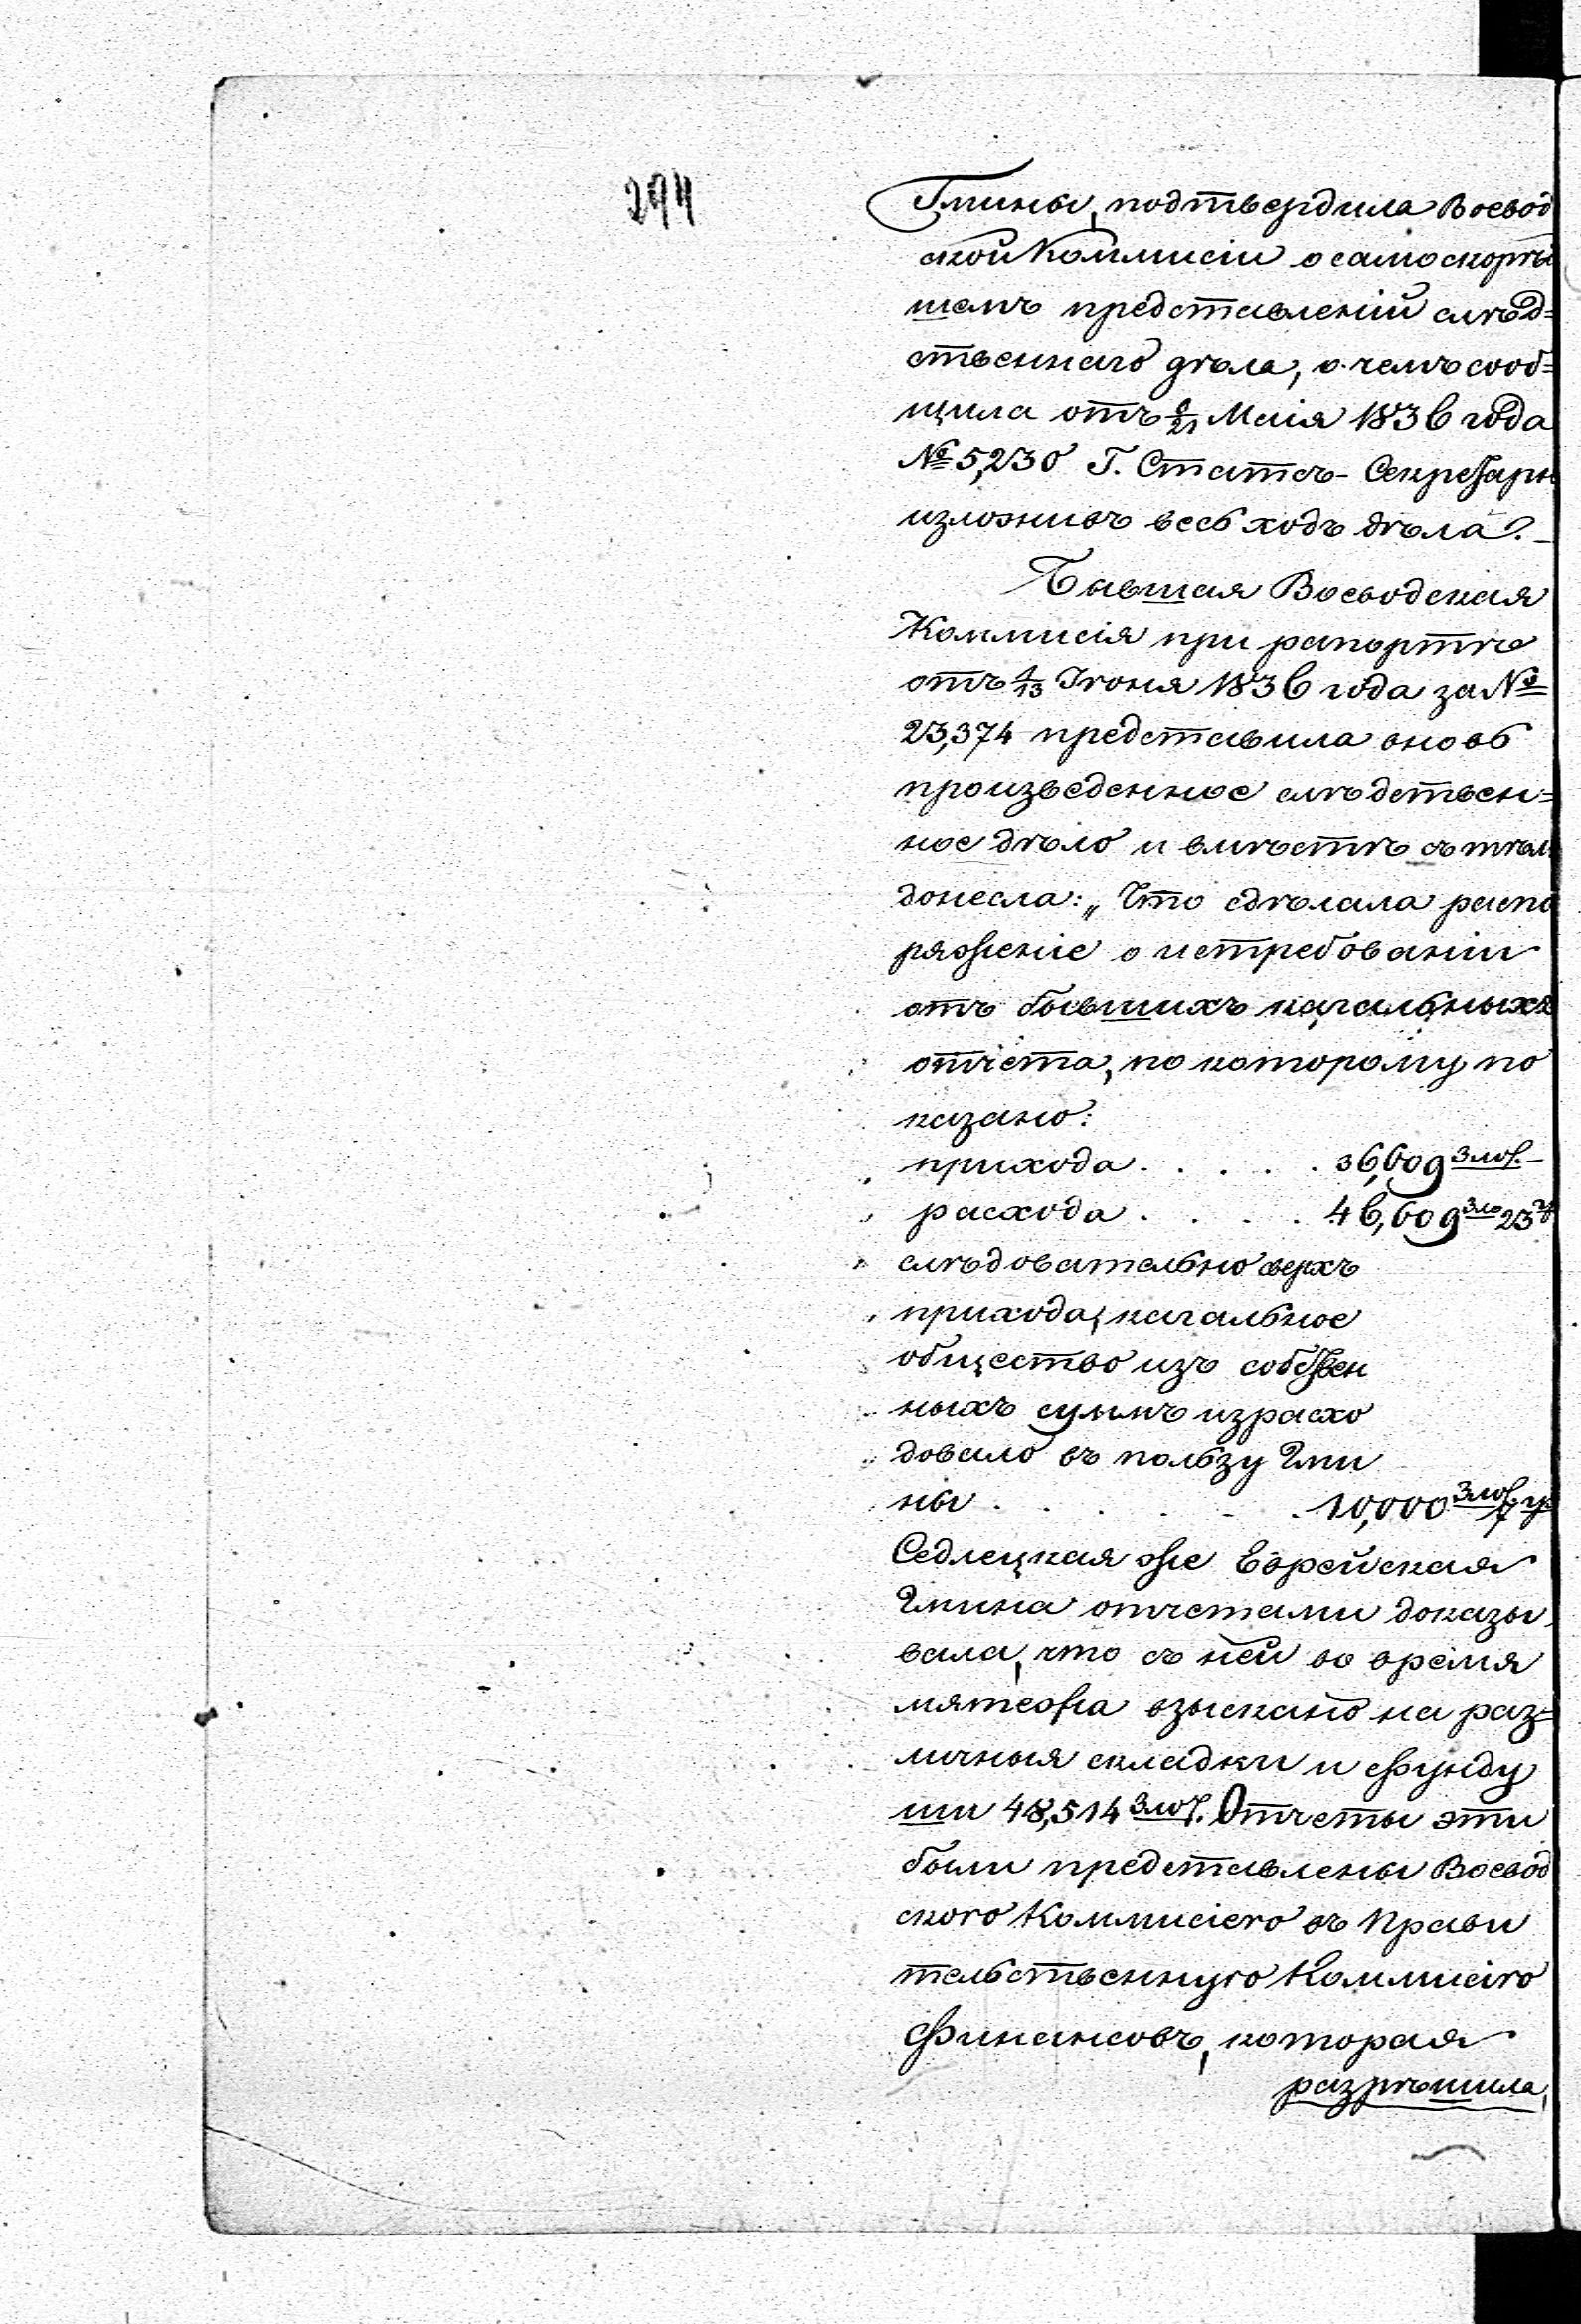 294
Гмины, подтвердила Воевод
ской Коммисіи о самоскорѣй
шемъ представленіи слѣд=
ственнаго дѣла, о чемъ сооб=
щила отъ 9/21 Маія 1836 года
№ 5,230 Г. Статсъ-Секретарю
изложивъ весь ходъ дѣла.
Бывшая Воеводская
Коммисія при рапортѣ
отъ 1/13 Іюня 1836 года за №
23,374 представила вновь
произведенное слѣдствен=
ное дѣло и вмѣстѣ съ тѣмъ
донесла: „Что сдѣлала распо
ряженіе о истребованіи
отъ бывшихъ кагальныхъ
отчета, по которому по
казано:
прихода . . . . . 36,609 злот. –
расхода . . . . 46,609 зло 23 г
слѣдовательно сверхъ
прихода, кагальное
общество изъ собствен
ныхъ суммъ израсхо
довало въ пользу Гми
ны . . . . . . 10,000 злот. 7 гр
Седлецкая же Еврейская
Гмина отчетами доказы
вала, что съ ней во время
мятежа взыскано на раз=
личныя складки и фунду
ши 48,514 злот. Отчеты эти
были представлены Воевод
скою Коммисіею въ Прави
тельственную Коммисію
Финансовъ, которая
разрѣшила,